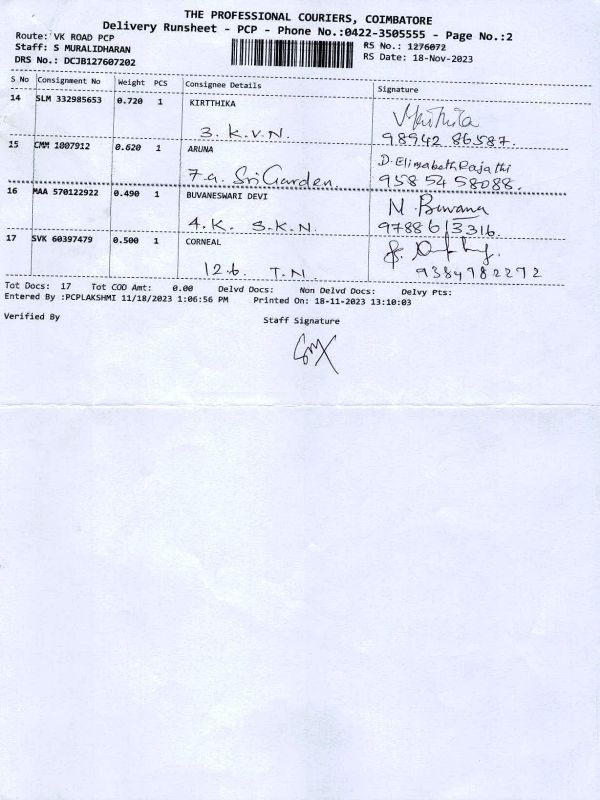 THE PROFESSIONAL COURIERS, COIMBATORE
Delivery Runsheet - PCP - Phone No.:0422-3505555 - Page No.:2
Route: VK ROAD PCP
Staff: S MURALIDHARAN
DRS No.: DCJB127607202
RS No.: 1276072
RS Date: 18-Nov-2023
S No Consignment No Weight PCS Consignee Details Signature
14 SLM 332985653 0.720 1 KIRTTHIKA
3. K.V.N.
98942 86587.
15 CMM 1007912 0.620 1 ARUNA D. Elizabeth Rajathi
7a. Sri Garden. 95854 58088.
16 MAA 570122922 0.490 1 BUVANESWARI DEVI N. Buvana
4. K. S.K.N. 9788613316.
17 SVK 60397479 0.500 1 CORNEAL
12.6. T.N. 9384982292
Tot Docs: 17 Tot COD Amt: 0.00 Delvd Docs: Non Delvd Docs: Delvy Pts:
Entered By :PCPLAKSHMI 11/18/2023 1:06:56 PM Printed On: 18-11-2023 13:10:03
Verified By Staff Signature